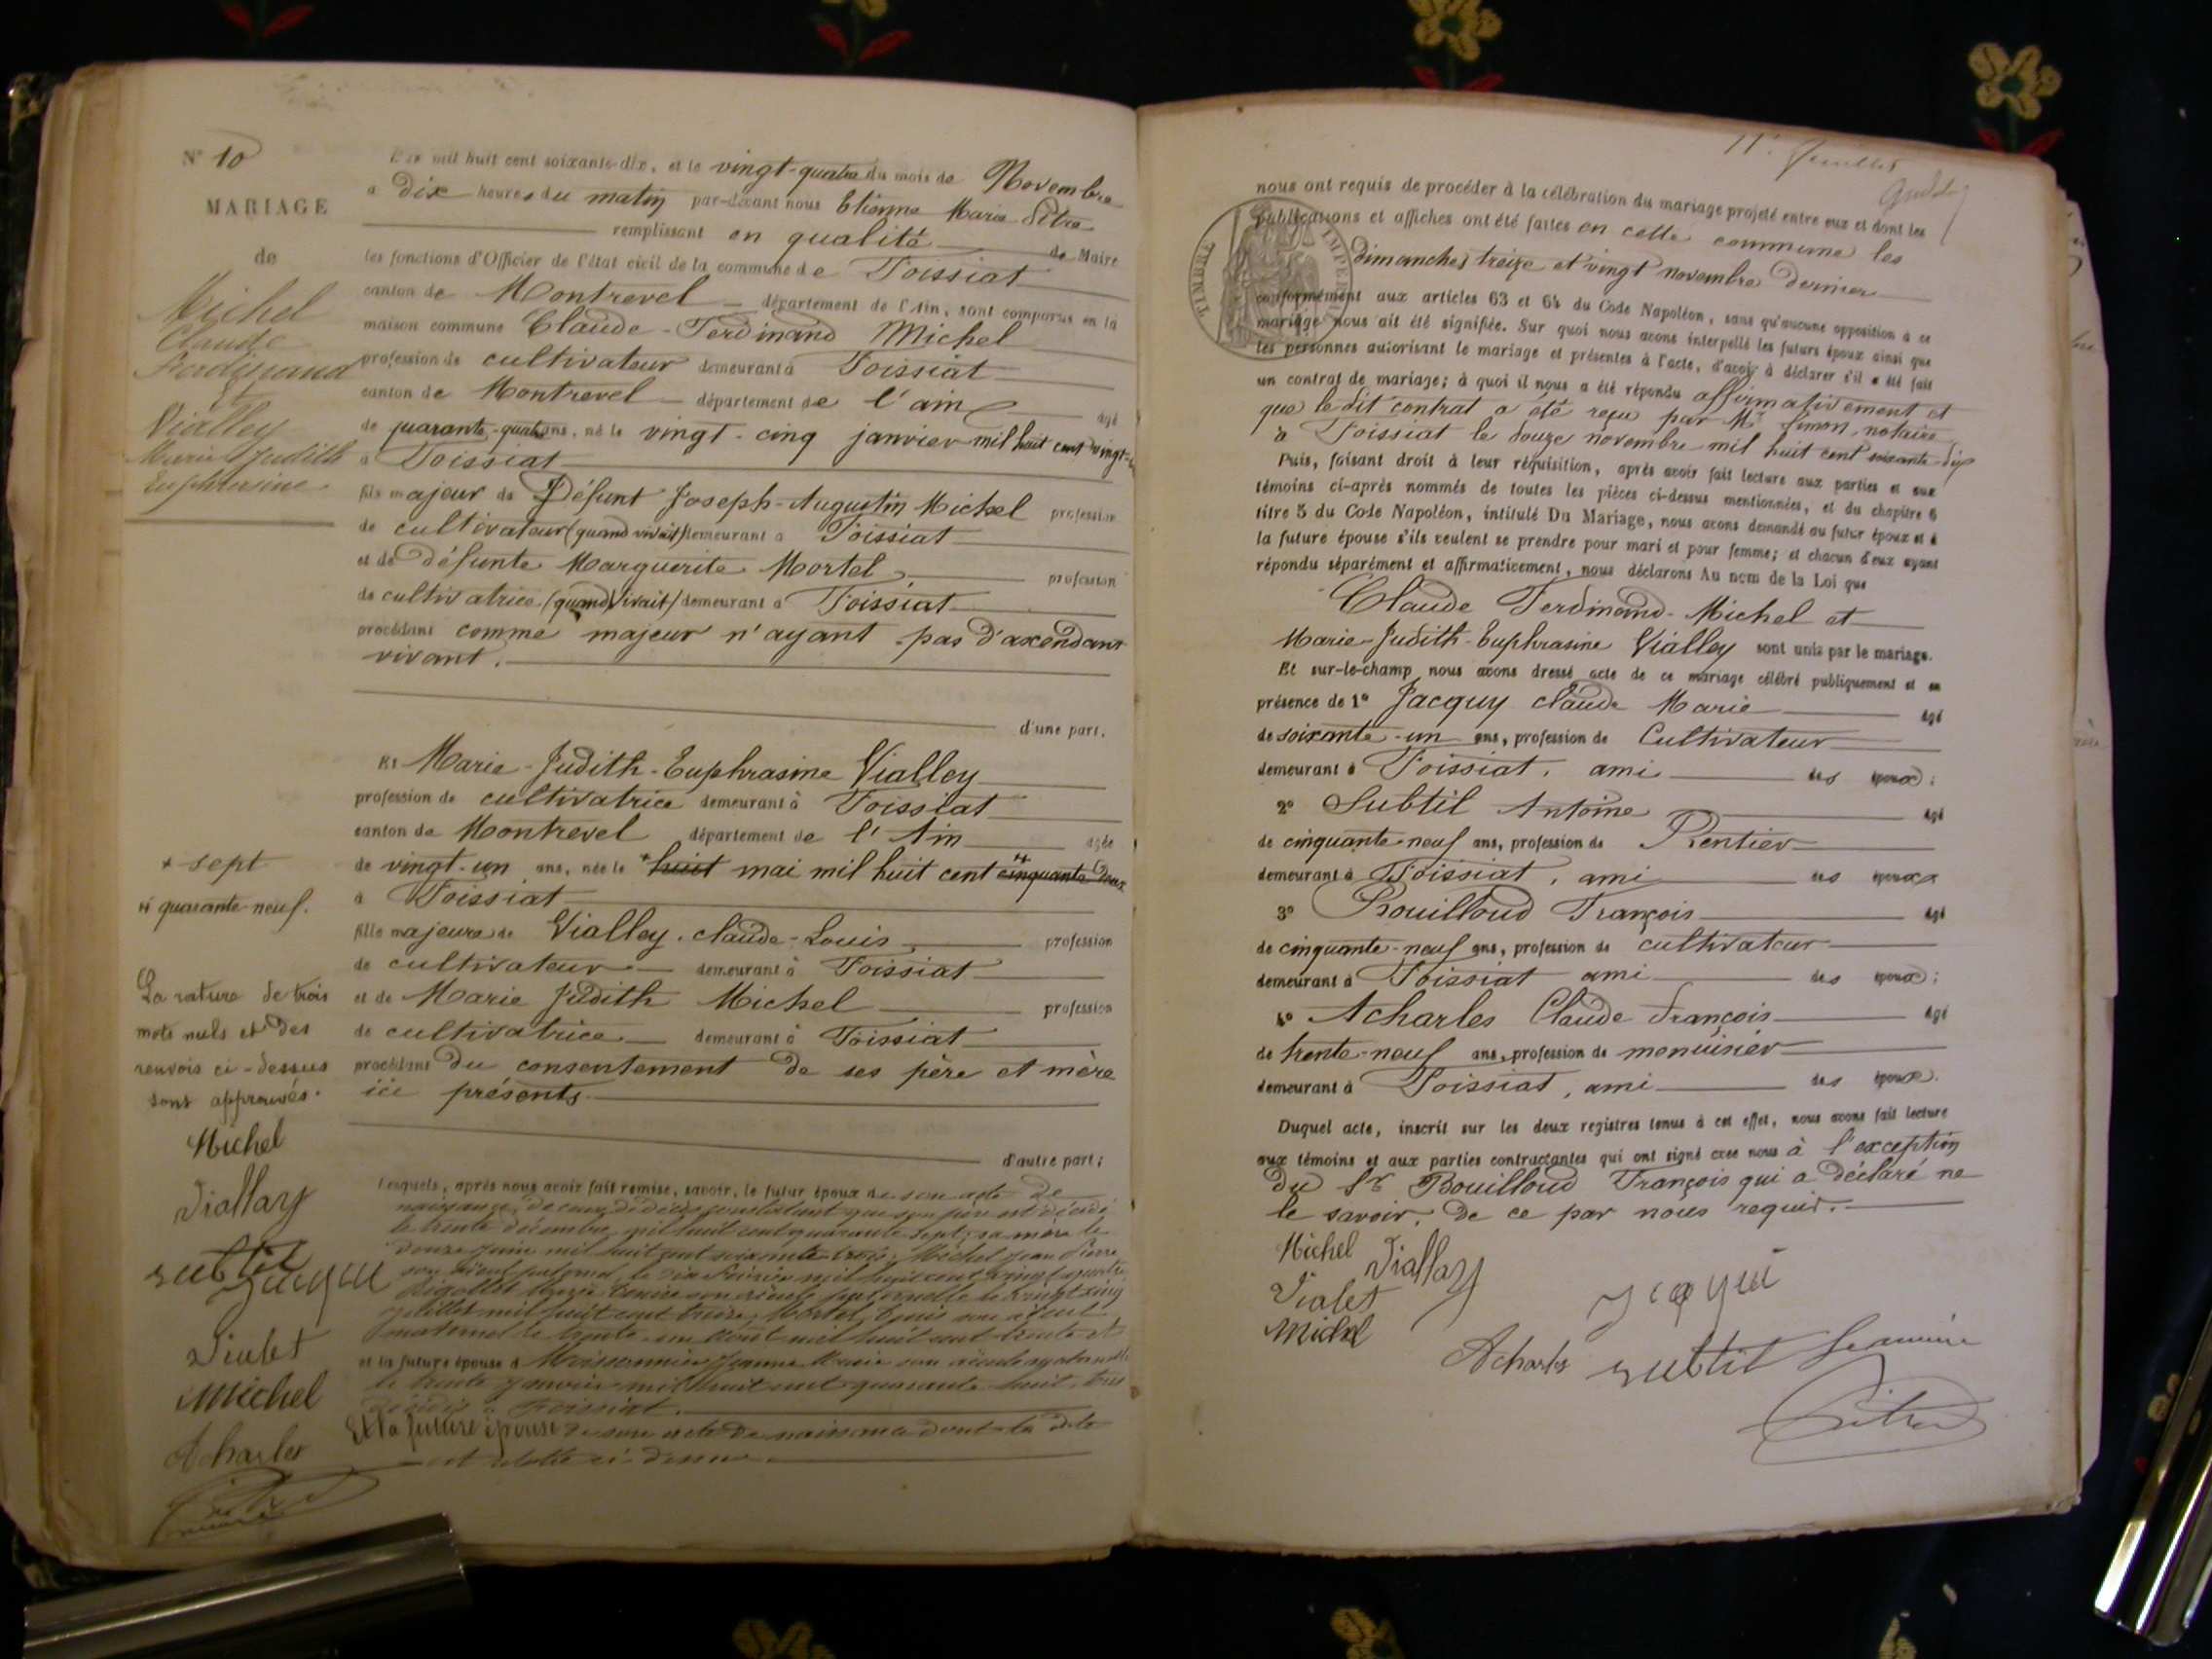 N° 10
MARIAGE
de
Michel
Claude
Ferdinand
et
Vialley
Marie Judith
Euphrasine
L'an mil huit cent soixante-dix, et le vingt-quatre du mois de Novembre
a dix heures du matin par-devant nous Etienne Marie Pitre
remplissant en qualité de Maire
les fonctions d'Officier de l'état civil de la commune de Foissiat
canton de Montrevel département de l'Ain, sont comparus en la
maison commune Claude-Ferdinand Michel
profession de cultivateur demeurant à Foissiat
canton de Montrevel département de l'ain âgé
de quarante-quatre ans, né le vingt-cinq janvier mil huit cent vingt-
à Foissiat
fils majeur de Défunt Joseph-Augustin Michel profession
de cultivateur (quand vivait) demeurant à Foissiat
et de défunte Marguerite Mortel, profession
de cultivatrice (quand vivait) demeurant à Foissiat
procédant comme majeur n'ayant pas d'ascendant
vivant.
d'une part.
Et Marie-Judith-Euphrasine Vialley
profession de cultivatrice demeurant à Foissiat
canton de Montrevel département de l'Ain âgée
de vingt-un ans, née le huit mai mil huit cent cinquante deux
à Foissiat
fille majeure de Vialley claude-Louis, profession
de cultivateur demeurant à Foissiat
et de Marie Judith Michel profession
de cultivatrice demeurant à Foissiat
procédant du consentement de ses père et mère
ici présents.
d'autre part;
+ sept
quarante-neuf.
La rature de trois
mots nuls et des
renvois ci-dessus
sont approuvés.
Michel
Viallay
subtil
Jacqui
Vialet
Michel
Acharles
Lesquels, après nous avoir fait remise, savoir, le futur époux de son acte de
naissance, de ceux de décès constatant que son père est décédé
le trente décembre mil huit cent quarante sept, sa mère le
douze juin mil huit cent soixante trois; Michel Jean Pierre
son aïeul paternel le dix février mil huit cent vingt quatre
son aïeule paternelle le vingt cinq
juillet mil huit cent treize, Mortel son aïeul
maternel le trente-un août mil huit cent trente et
et la future épouse d Moissonnier Jeanne Marie son aïeule maternelle
le trente janvier mil huit cent quarante huit, tous
décédés à Foissiat.
Et la future épouse de son acte de naissance dont la date
est relatée ci-dessus.
nous ont requis de procéder à la célébration du mariage projeté entre eux et dont les
publications et affiches ont été faites en cette commune les
dimanches treize et vingt novembre dernier
conformément aux articles 63 et 64 du Code Napoléon, sans qu'aucune opposition à ce
mariage nous ait été signifiée. Sur quoi nous avons interpellé les futurs époux ainsi que
les personnes autorisant le mariage et présentes à l'acte, d'avoir à déclarer s'il a été fait
un contrat de mariage; à quoi il nous a été répondu affirmativement et
que le dit contrat a été reçu par Me Simon, notaire
à Foissiat le douze novembre mil huit cent soixante dix
Puis, faisant droit à leur réquisition, après avoir fait lecture aux parties et aux
témoins ci-après nommés de toutes les pièces ci-dessus mentionnées, et du chapitre 6
titre 5 du Code Napoléon, intitulé Du Mariage, nous avons demandé au futur époux et à
la future épouse s'ils veulent se prendre pour mari et pour femme; et chacun d'eux ayant
répondu séparément et affirmativement, nous déclarons Au nom de la Loi que
Claude Ferdinand-Michel et
Marie-Judith-Euphrasine Vialley sont unis par le mariage.
Et sur-le-champ nous avons dressé acte de ce mariage célébré publiquement et en
présence de 1° Jacquy claude Marie âgé
de soixante-un ans, profession de Cultivateur
demeurant à Foissiat, ami des époux;
2° Subtil Antoine âgé
de cinquante-neuf ans, profession de Rentier
demeurant à Foissiat, ami des époux
3° Bouilloud François âgé
de cinquante-neuf ans, profession de cultivateur
demeurant à Foissiat ami des époux;
4° Acharles Claude François âgé
de trente-neuf ans, profession de menuisier
demeurant à Foissiat, ami des époux.
Duquel acte, inscrit sur les deux registres tenus à cet effet, nous avons fait lecture
aux témoins et aux parties contractantes qui ont signé avec nous à l'exception
du Sr Bouilloud François qui a déclaré ne
le savoir, de ce par nous requis.
Michel Viallay
Vialet Jcaqui
Michel
Acharles subtil Le maire
Pitre
TIMBRE IMPERIAL